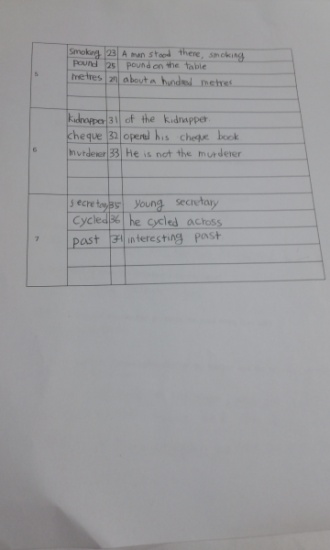 5
smoking 23 A man stood there, smoking
pound 25 pound on the table
metres 29 about a hundred metres
6
kidnapper 31 of the kidnapper
cheque 32 opened his cheque book
murderer 33 He is not the murderer
7
secretary 35 young secretary
Cycled 36 he cycled across
past interesting past